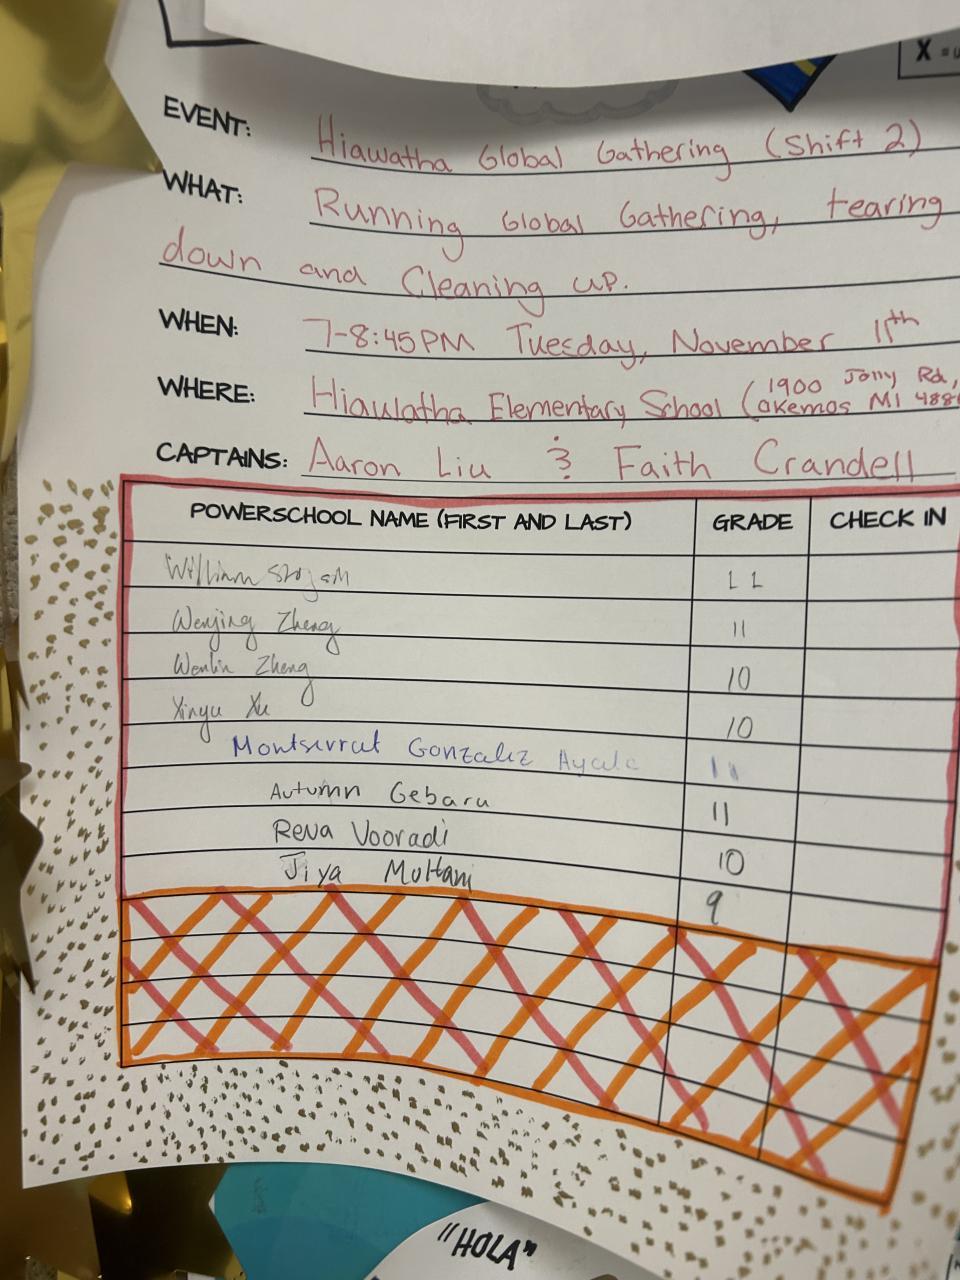 X =
EVENT: Hiawatha Global Gathering (Shift 2)
WHAT: Running Global Gathering, tearing
down and Cleaning up.
WHEN: 7-8:45PM Tuesday, November 11th
WHERE: Hiawatha Elementary School (1900 Jolly Rd,
Okemos MI
CAPTAINS: Aaron Liu & Faith Crandell
POWERSCHOOL NAME (FIRST AND LAST) GRADE CHECK IN
William 11
Wenjing Zheng 11
Wenlin Zheng 10
Xinyu Xu 10
Montserrat Gonzalez Ayala 11
Autumn Gebara 11
Rena Vooradi 10
Jiya Multani 9
"HOLA"